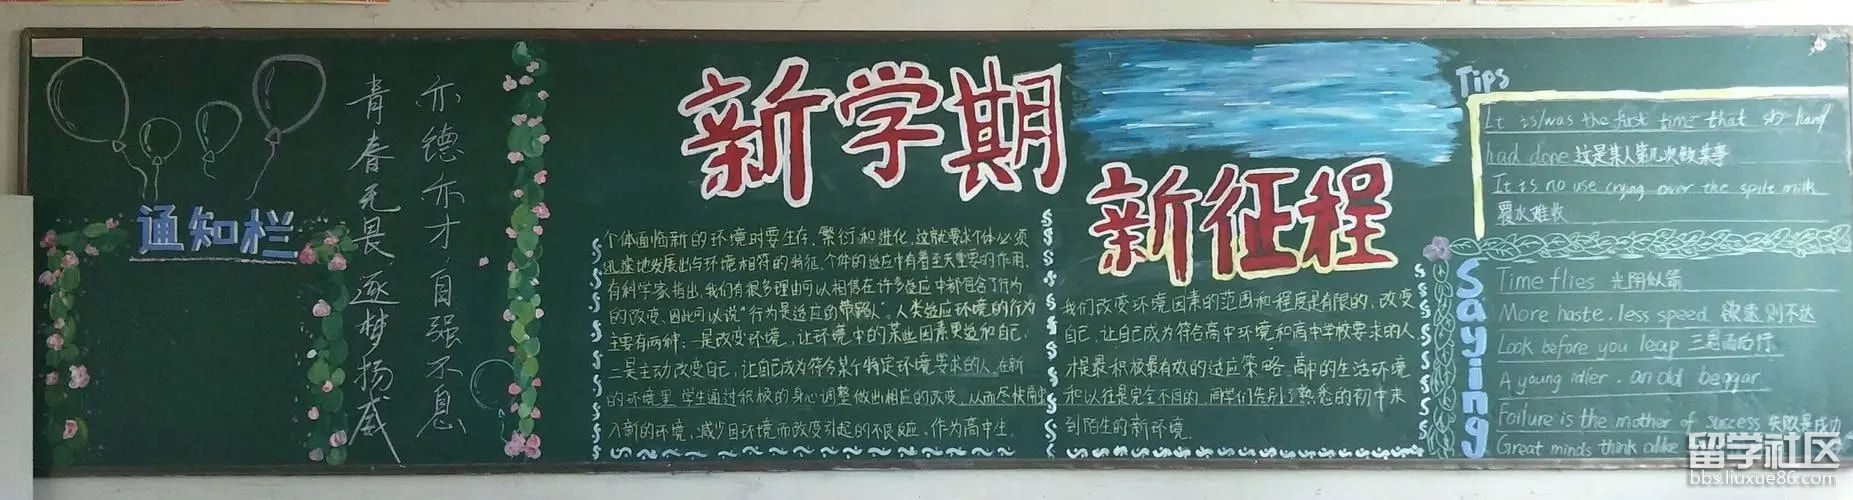 亦德亦才自强不息
青春无畏逐梦扬威
通知栏
新学期
新征程
个体面临新的环境时要生存、繁衍和进化，这就要求个体必须
迅速地发展出与环境相符的特征，个体的适应中有着至关重要的作用。
有科学家指出，我们有很多理由可以相信在许多适应中都包含了行为
的改变，因此可以说"行为是适应的带路人"。人类适应环境的行为
主要有两种：一是改变环境，让环境中的某些因素更适和自己，
二是主动改变自己，让自己成为符合某个特定环境要求的人。在新
的环境里，学生通过积极的身心调整做出相应的改变，从而尽快融
入新的环境，减少因环境而改变引起的不良反应。作为高中生，
我们改变环境因素的范围和程度是有限的，改变
自己，让自己成为符合高中环境和高中学校要求的人
才是最积极最有效的适应策略。高中的生活环境
和以往是完全不同的，同学们告别了熟悉的初中来
到陌生的新环境。
Tips
It is/was the first time that sb have/
had done 这是某人第几次做某事
It is no use crying over the spilt milk
覆水难收
Saying
Time flies 光阴似箭
More haste. less speed 欲速则不达
Look before you leap 三思而后行
A young idler. an old beggar.
Failure is the mother of success 失败是成功
Great minds think alike
留学社区
bbs.liuxue86.com